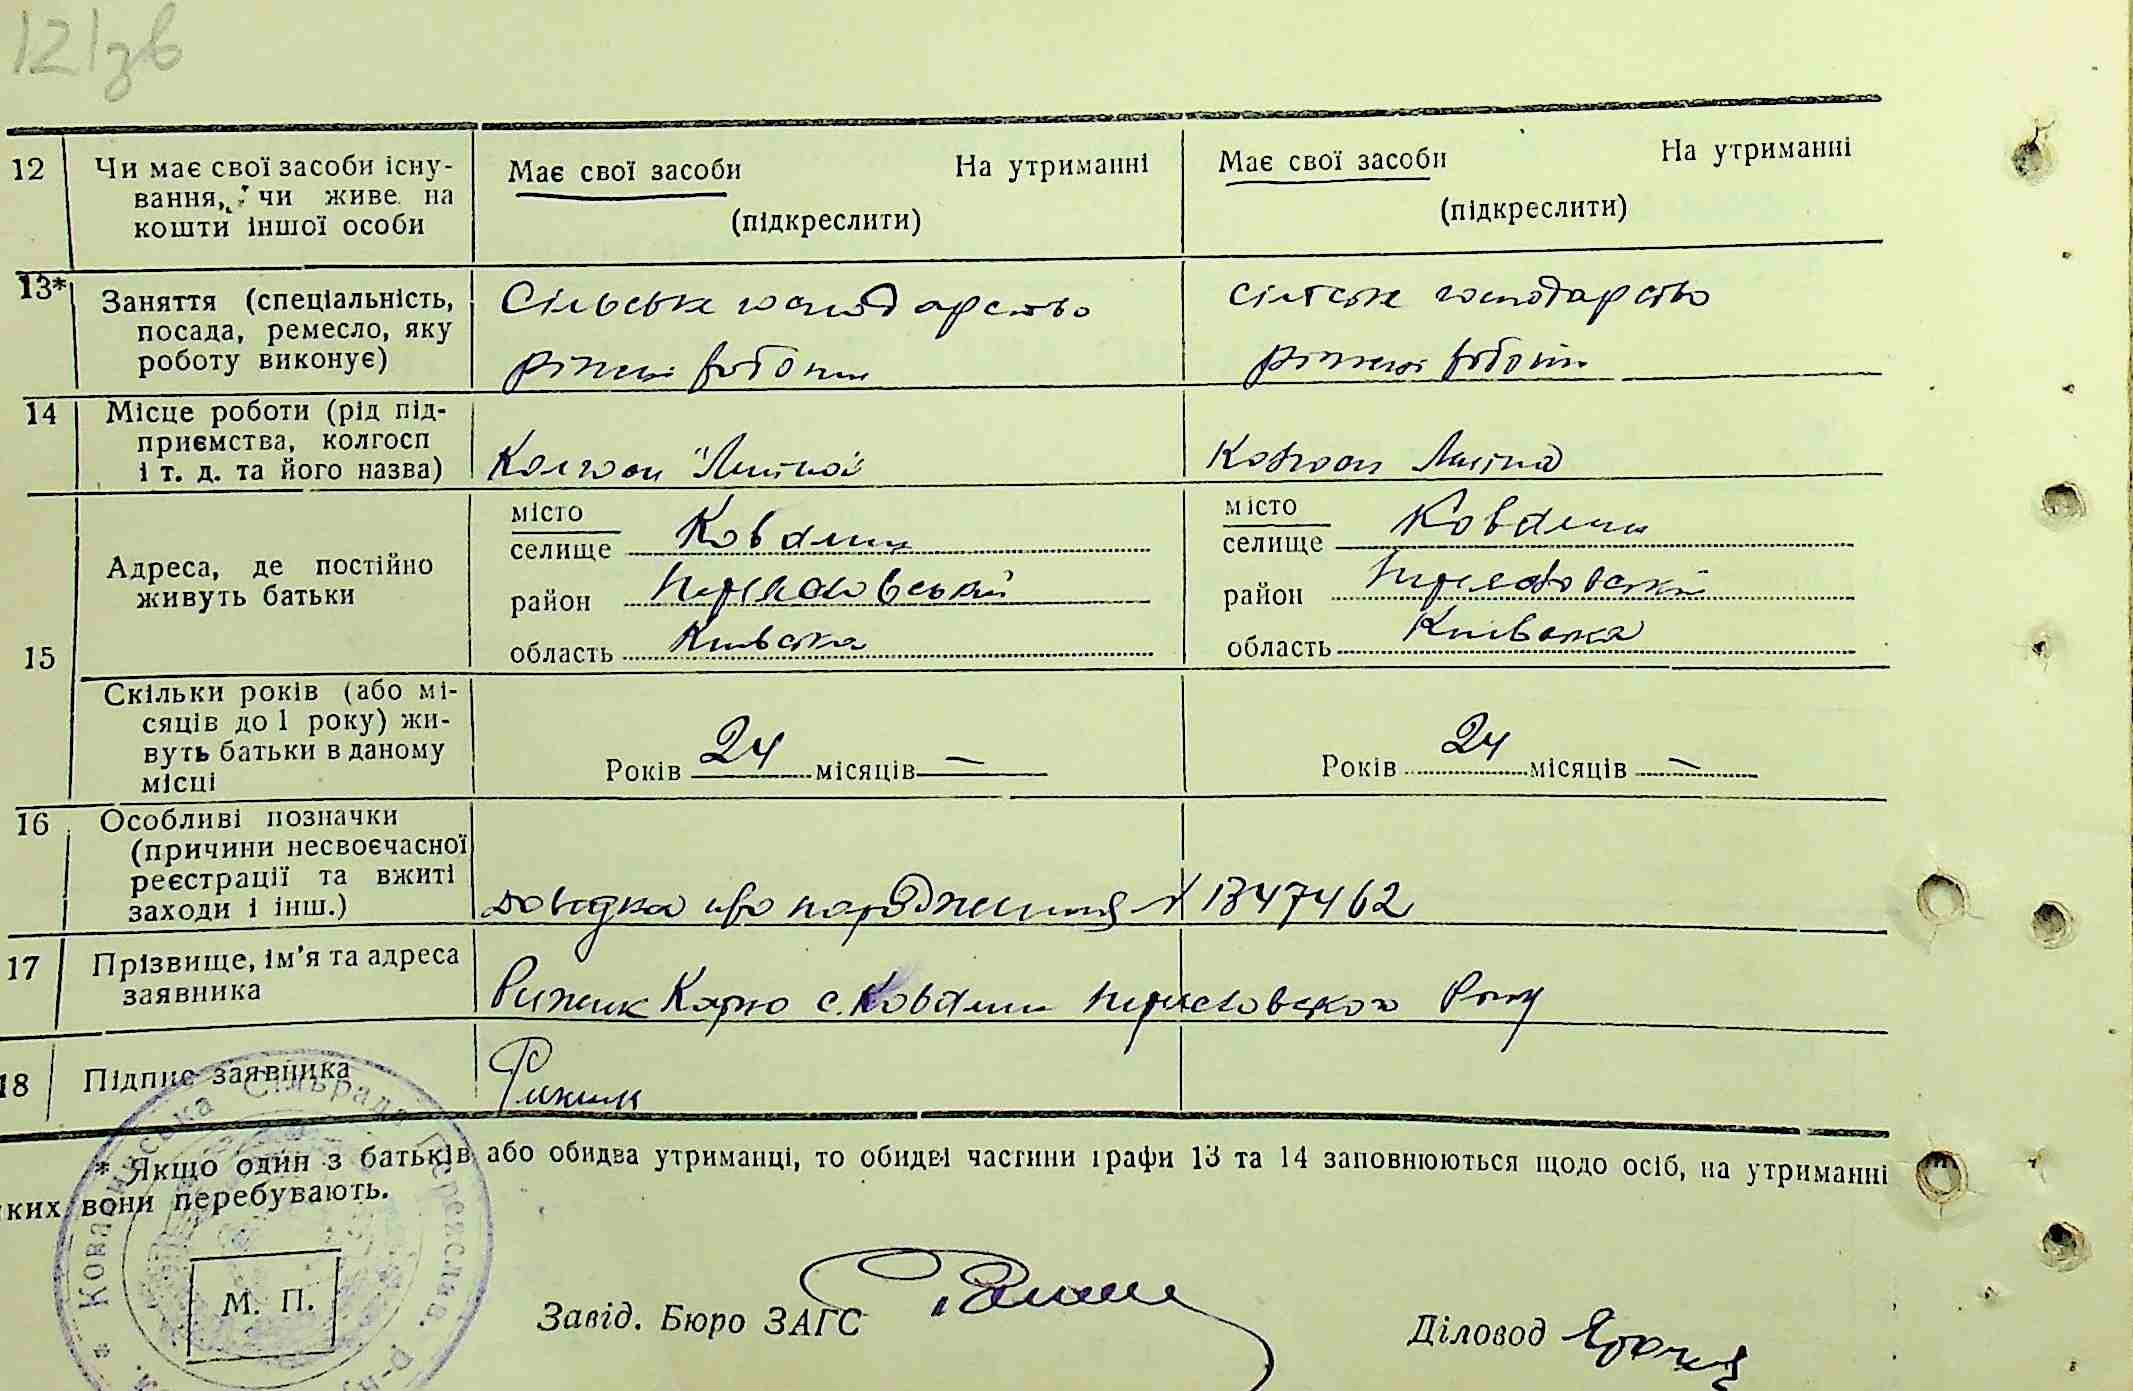 121зв
12 Чи має свої засоби існу-
вання, чи живе на
кошти іншої особи
Має свої засоби На утриманні
(підкреслити)
Має свої засоби На утриманні
(підкреслити)
13* Заняття (спеціальність,
посада, ремесло, яку
роботу виконує)
Сільське господарство
різні роботи
сільське господарство
різні роботи
14 Місце роботи (рід під-
приємства, колгосп
і т. д. та його назва)
Колгосп
Колгосп
15 Адреса, де постійно
живуть батьки
місто
селище Ковалин
район Переяславський
область Київська
місто
селище Ковалин
район Переяславський
область Київська
Скільки років (або мі-
сяців до 1 року) жи-
вуть батьки в даному
місці
Років 24 місяців —
Років 24 місяців —
16 Особливі позначки
(причини несвоєчасної
реєстрації та вжиті
заходи і інш.)
довідка про народження № 1347462
17 Прізвище, ім'я та адреса
заявника
Рижик с. Ковалин
18 Підпис заявника
Рижик
* Якщо один з батьків або обидва утриманці, то обидві частини графи 13 та 14 заповнюються щодо осіб, на утриманні
яких вони перебувають.
Сільрада Переяслав. р-ну
М. П.
Завід. Бюро ЗАГС
Діловод